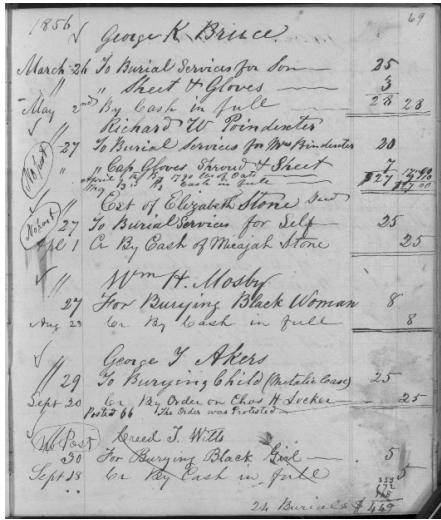 1856 69
√ George K Bruce
March 26 To Burial Services for Son — 25
" " Sheet & Gloves — 3
May 2nd By Cash in full 28 28
√ " Richard W Poindexter
27 To Burial Services for Mrs Poindexter 20
No post " " Cap Gloves Shroud & Sheet 7
April By of Oats
May By Cash in full $27
No post " Ext of Elizabeth Stone Decd
27 To Burial Services for Self 25
Apl 1 Cr By Cash of Micajah Stone 25
√ " Wm H. Mosby
27 For Burying Black Woman 8
Aug 23 Cr By Cash in full 8
√ " George T Akers
" 29 To Burying Child (Metalic Case) 25
Sept 20 Cr By Order on Chas H. Locker — 25
Posted 66 The Order was Protested
No Post Creed T. Wills
30 For Burying Black Girl — 5
Sept 18 Cr By Cash in full 5
24 Burials $ 449